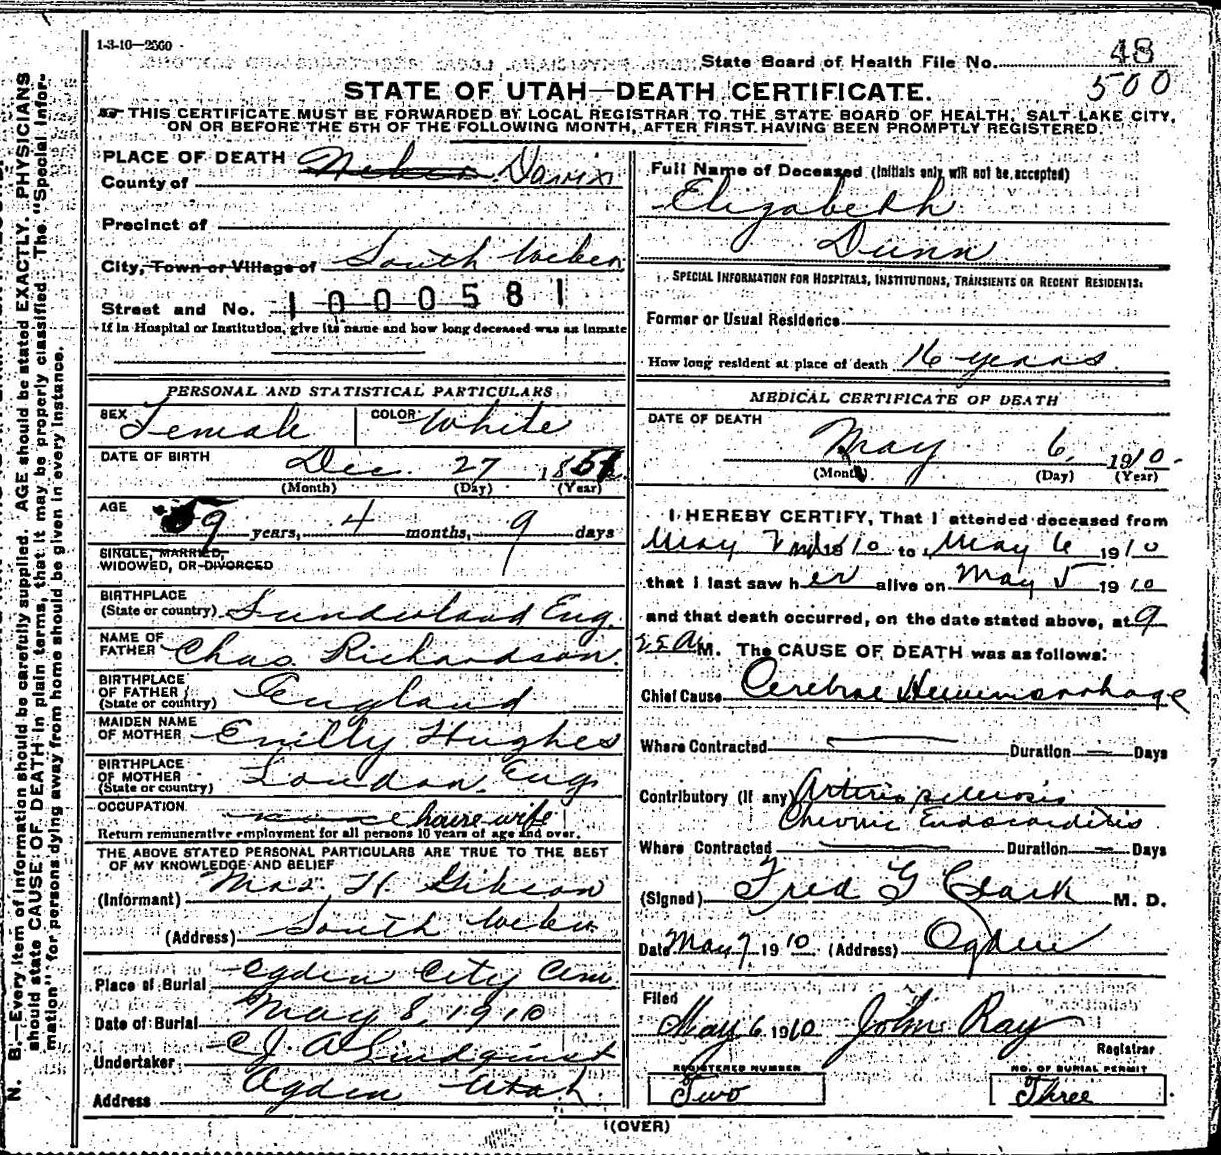 1-3-10—2500
State Board of Health File No. 48
500
STATE OF UTAH—DEATH CERTIFICATE.
THIS CERTIFICATE MUST BE FORWARDED BY LOCAL REGISTRAR TO THE STATE BOARD OF HEALTH, SALT LAKE CITY,
ON OR BEFORE THE 5TH OF THE FOLLOWING MONTH, AFTER FIRST HAVING BEEN PROMPTLY REGISTERED.
PLACE OF DEATH
County of Weber Davis
Precinct of
City, Town or Village of South Weber
Street and No. 1000581
If in Hospital or Institution, give its name and how long deceased was an inmate
PERSONAL AND STATISTICAL PARTICULARS
SEX Female COLOR White
DATE OF BIRTH Dec. 27 185
(Month) (Day) (Year)
AGE 59 years, 4 months, 9 days
SINGLE, MARRIED,
WIDOWED, OR DIVORCED
BIRTHPLACE
(State or country) Sunderland Eng.
NAME OF
FATHER Chas. Richardson.
BIRTHPLACE
OF FATHER
(State or country) England
MAIDEN NAME
OF MOTHER Emilly Hughes
BIRTHPLACE
OF MOTHER
(State or country) London. Eng.
OCCUPATION
house wife
Return remunerative employment for all persons 10 years of age and over.
THE ABOVE STATED PERSONAL PARTICULARS ARE TRUE TO THE BEST
OF MY KNOWLEDGE AND BELIEF
(Informant) Mrs. H. Gibson
(Address) South Weber
Place of Burial Ogden City Cem.
Date of Burial May 8, 1910
Undertaker C.J.A. Lindquist
Address Ogden Utah.
Full Name of Deceased (Initials only will not be accepted)
Elizabeth
Dunn
SPECIAL INFORMATION FOR HOSPITALS, INSTITUTIONS, TRANSIENTS OR RECENT RESIDENTS:
Former or Usual Residence
How long resident at place of death 16 years
MEDICAL CERTIFICATE OF DEATH
DATE OF DEATH
May 6, 1910.
(Month) (Day) (Year)
I HEREBY CERTIFY, That I attended deceased from
May 10 to May 6 1910
that I last saw her alive on May 5 1910
and that death occurred, on the date stated above, at 9
A M. The CAUSE OF DEATH was as follows:
Chief Cause Cerebral Hemmorrhage
Where Contracted Duration Days
Contributory (If any) Arterio sclerosis
Chronic Endocarditis
Where Contracted Duration Days
(Signed) Fred G Clark M. D.
Date May 7 1910 (Address) Ogden
Filed
May 6 1910 John Ray
Registrar
REGISTERED NUMBER
Two
NO. OF BURIAL PERMIT
Three
(OVER)
N. B.—Every item of information should be carefully supplied. AGE should be stated EXACTLY. PHYSICIANS
should state CAUSE OF DEATH in plain terms, that it may be properly classified. The "Special Infor-
mation" for persons dying away from home should be given in every instance.